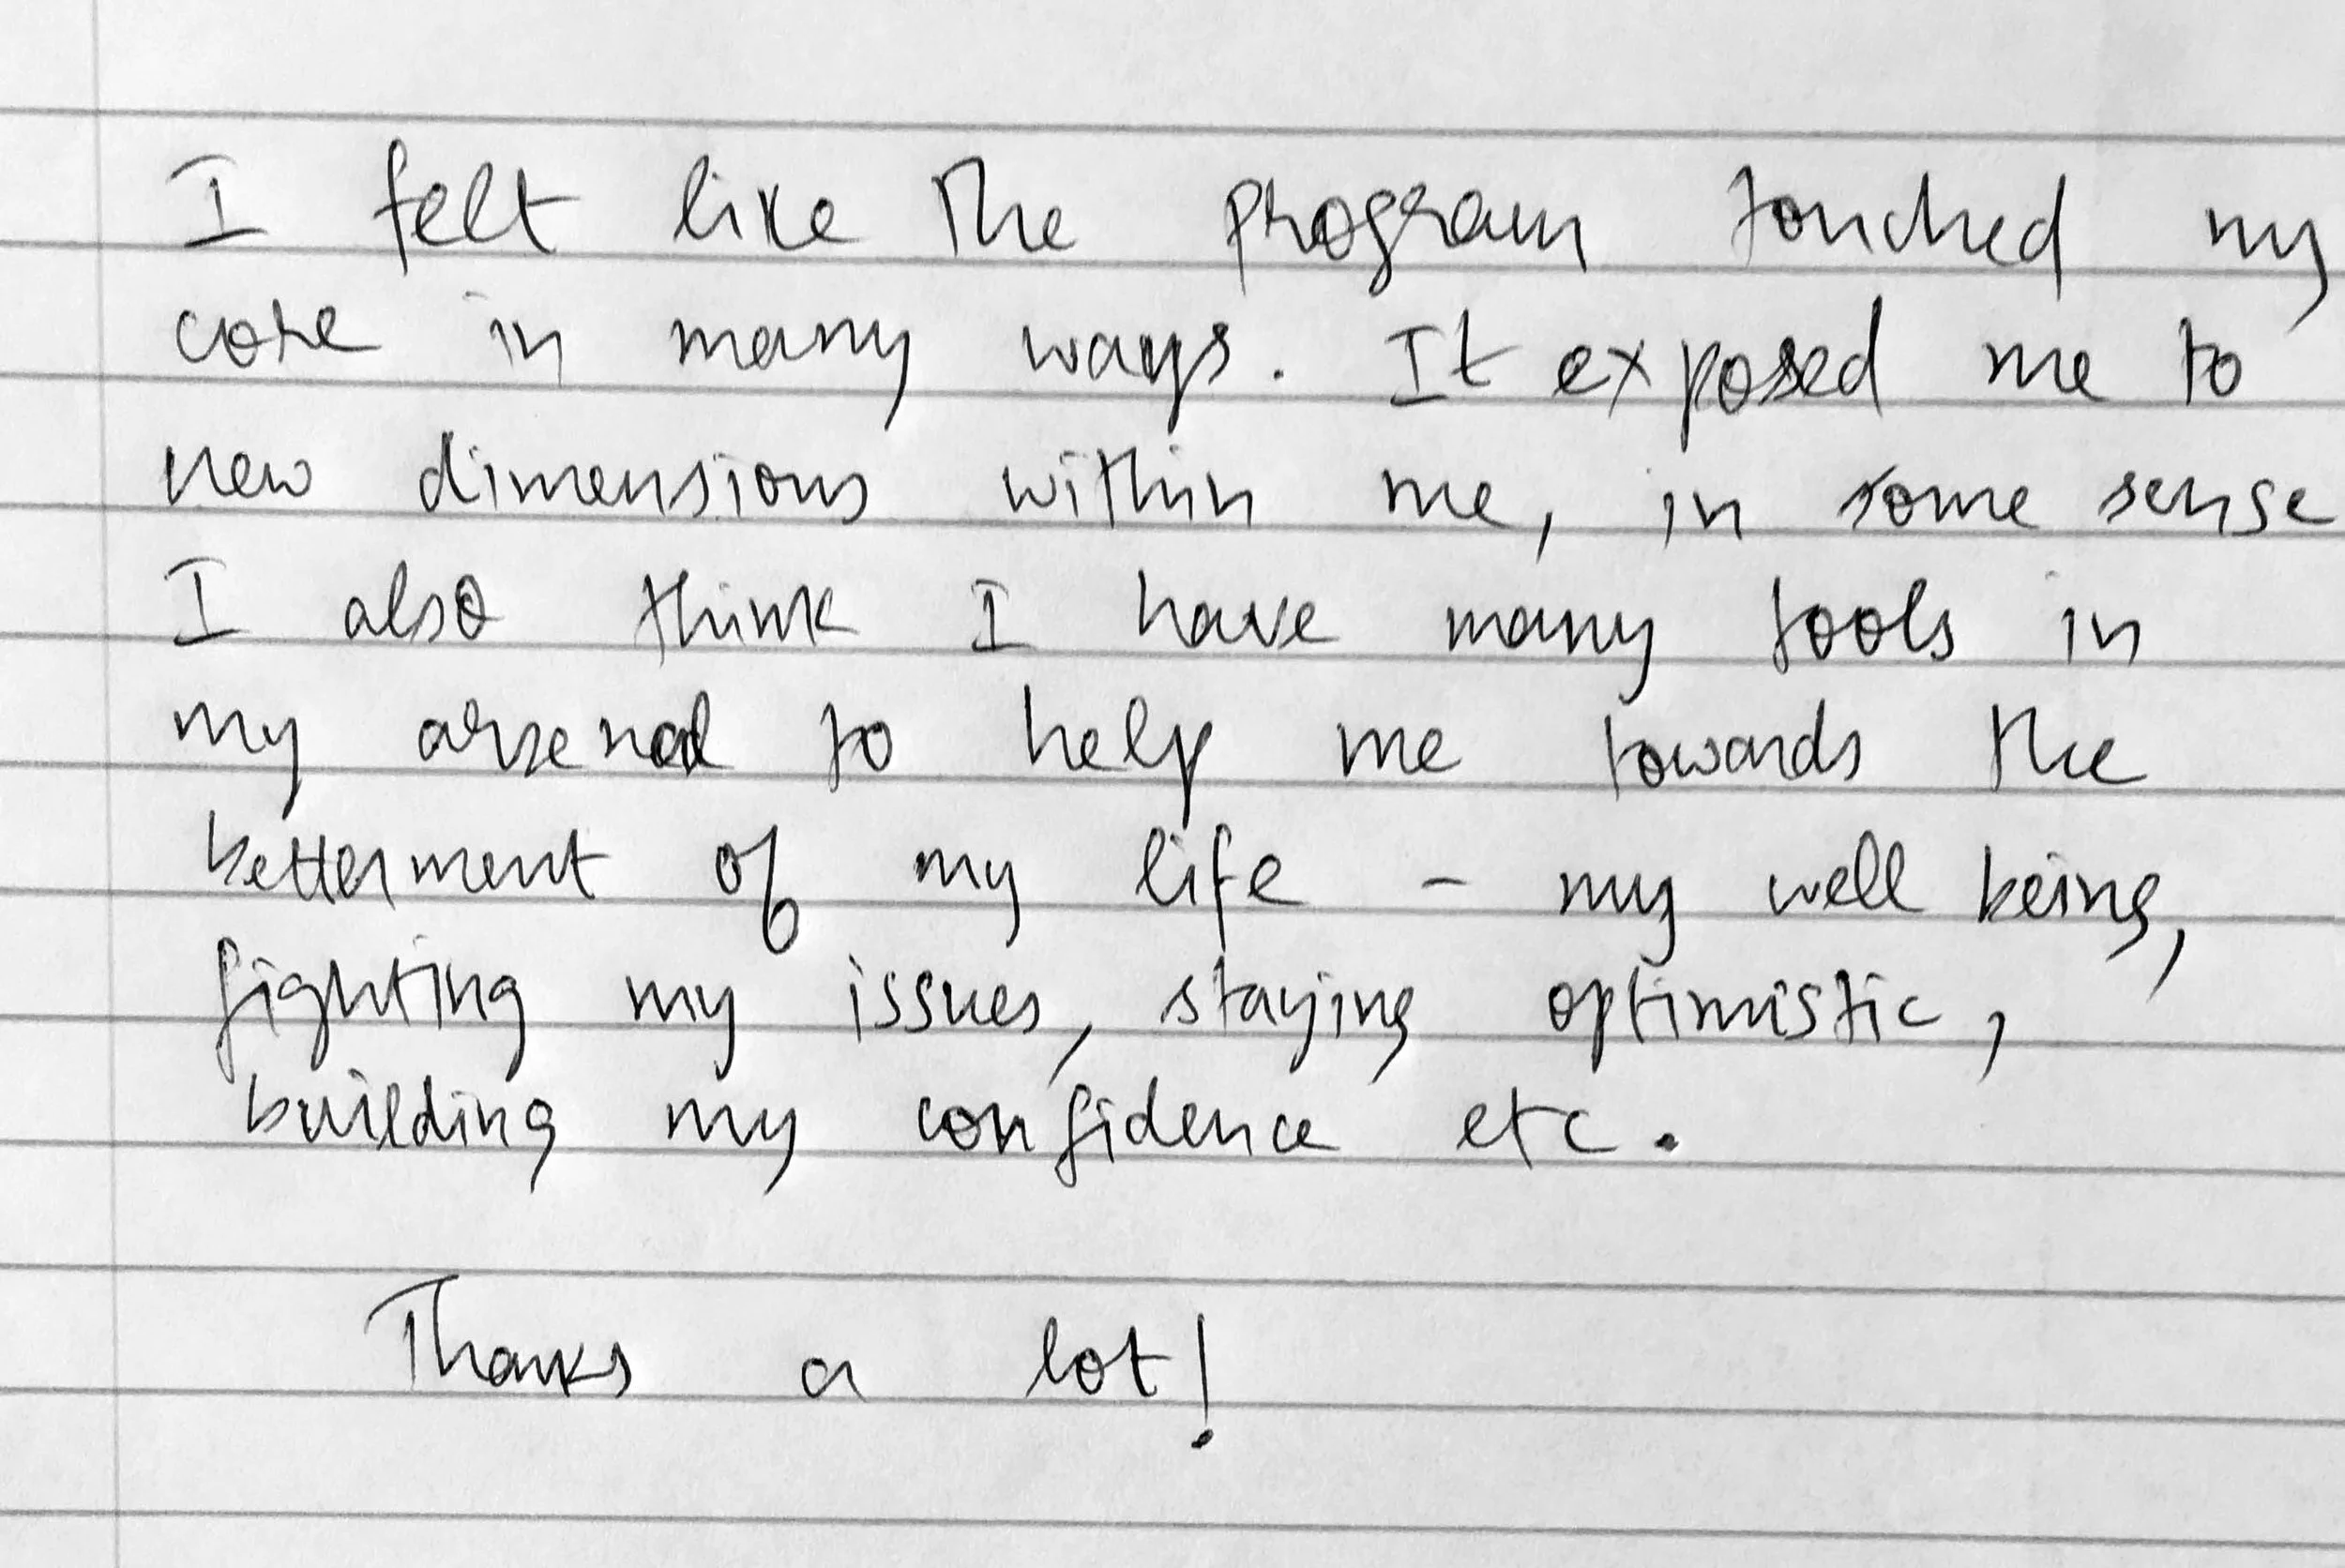 I felt like the program touched my
core in many ways. It exposed me to
new dimensions within me, in some sense
I also think I have many tools in
my arsenal to help me towards the
betterment of my life - my well being,
fighting my issues, staying optimistic,
building my confidence etc.
Thanks a lot!